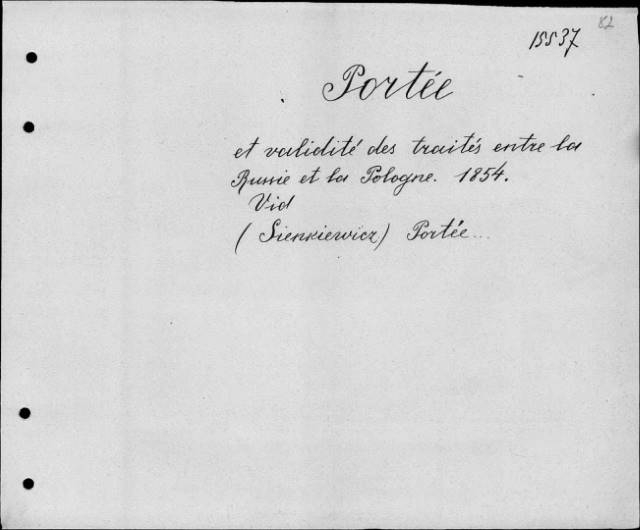 82
15537
Portée
et validité des traités entre la
Russie et la Pologne. 1854.
Vid
(Sienkiewicz) Portée...